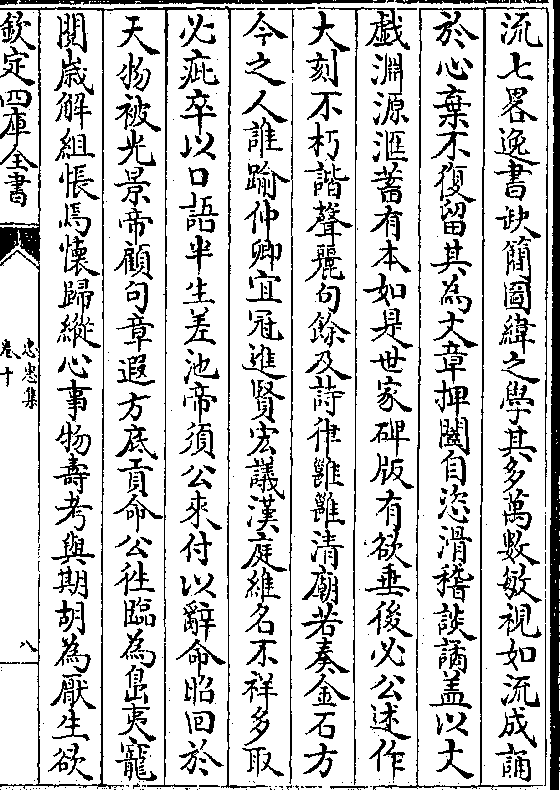 流七畧逸書缺簡圖緯之學其多萬數敏視如流成誦
於心棄不復留其為文章押闔自恣滑稽談譎盖以文
戯淵源滙蓄有本如是世家碑版有欲垂後必公述作
大刻不朽諧聲麗句餘及詩律雝雝清廟若奏金石方
今之人誰踰仲卿宜冠進賢宏議漢庭維名不祥多取
必疵卒以口語半生差池帝須公來付以辭命昭回於
天物被光景帝顧句章遐方底貢命公徃臨為島夷寵
閱歳解組悵焉懷歸縱心事物壽考與期胡為厭生欲
欽定四庫全書
忠惠集
卷十
八